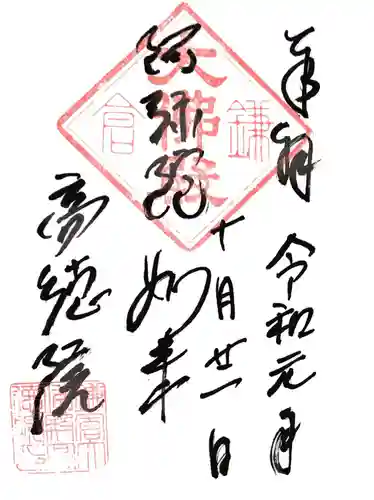 奉拝
令和元年
十月廿一日
阿弥陀如来
高徳院
大佛殿
鎌倉